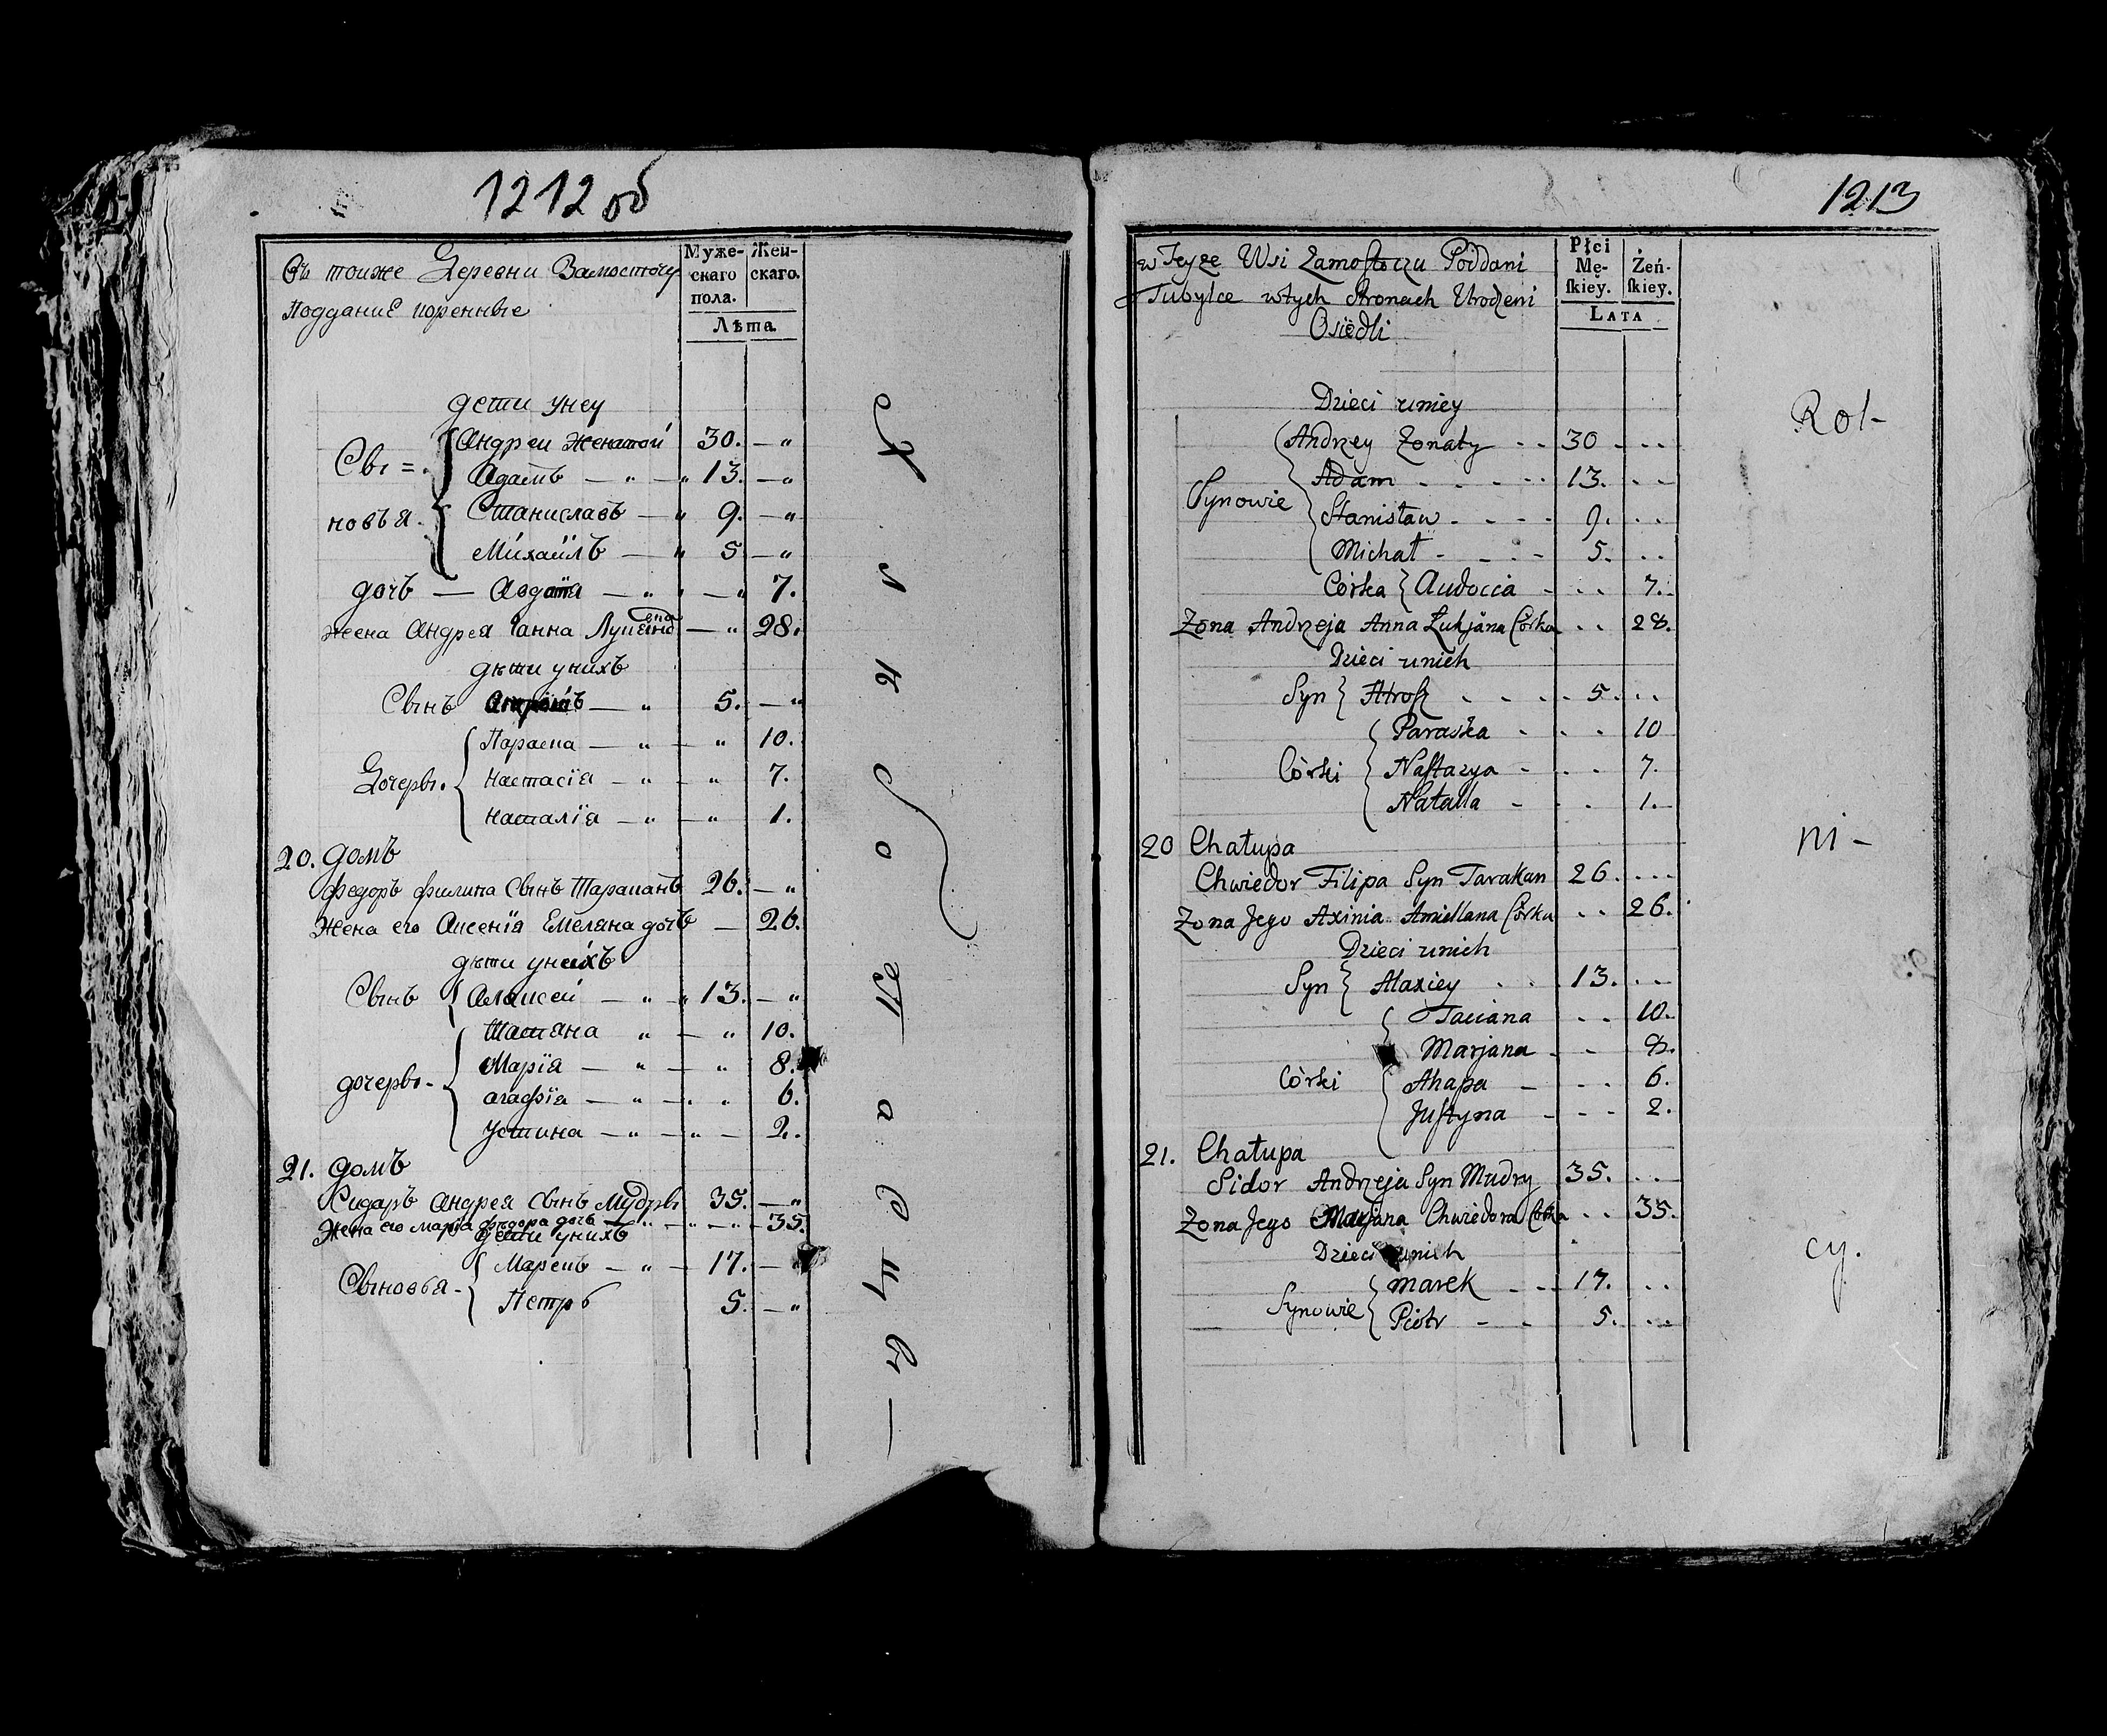 1212 об
въ тоиже Деревни Замосточу
Подданиѣ коренные
Муже-
скаго
пола.
Жен-
скаго.
Лѣта
дети унеу
Сы=
новья.
Андреи женатои 30. — "
Адамъ — " — " 13. — "
Станиславъ — " 9. — "
Михаилъ — " 5 — "
дочъ — Авдотia — " — " 7.
жена Андрея Ганна — " 28.
дѣти унихъ
Сынъ — " 5. — "
Дочеры.
Параска — " — " 10.
Настасïя — " — " 7.
Наталïя — " — " 1.
20. домъ
Федоръ Филипа Сынъ Тараканъ 26. — "
Жена его Аксенïя Емеляна дочъ — 26.
дѣти унихъ
Сынъ { Алаксей — " — " 13. — "
дочеры-
Татяна " — " 10.
Марïя — " — " 8.
агафïя — " — " 6.
Устина — " — " — 2.
21. домъ
Сидаръ Андрея Сынъ Мудры 35. — "
Жена его Марïа Федора дочъ — " — " — " — 35.
дети унихъ
Сыновья-
Марекъ — " — 17. —
Петръ 5. — "
1213
w Teyze Wsi Zamostoczu Poddani
Tubylce w tych stronach Urodzeni
Osiedli
Płci
Mę-
ſkiey.
Żeń-
ſkiey.
LATA
Dzieci uniey
Synowie
Andrzey Zonaty - - 30 - - -
Adam - - - - - 13. - -
Stanisław - - - - 9. - -
Michał - - - - 5. - -
Córka } Audocia - - - 7.
Zona Andrzeja Anna Łukjana Córka - - 28.
Dzieci unich
Syn } - - - 5. - -
Córki
Paraska - - - 10
Naſtazya - - - 7.
Natalla - - 1.
20 Chałupa
Chwiedor Filipa Syn Tarakan 26. - - -
Zona Jego Axinia Amiellana Córka - - 26.
Dzieci unich
Syn } Alaxiey - - 13. - - -
Córki
Taciana - - 10.
Marjana - - 8.
Ahapa - - - - 6.
Juſtyna - - - - 2.
21. Chałupa
Sidor Andrzeja Syn Mudry 35. - -
Zona Jego Marjana Chwiedora Córka - - 35.
Dzieci unich
Synowie
Marek - - - 17. - -
Piotr - - 5. - -
Rol-
ni-
cy.